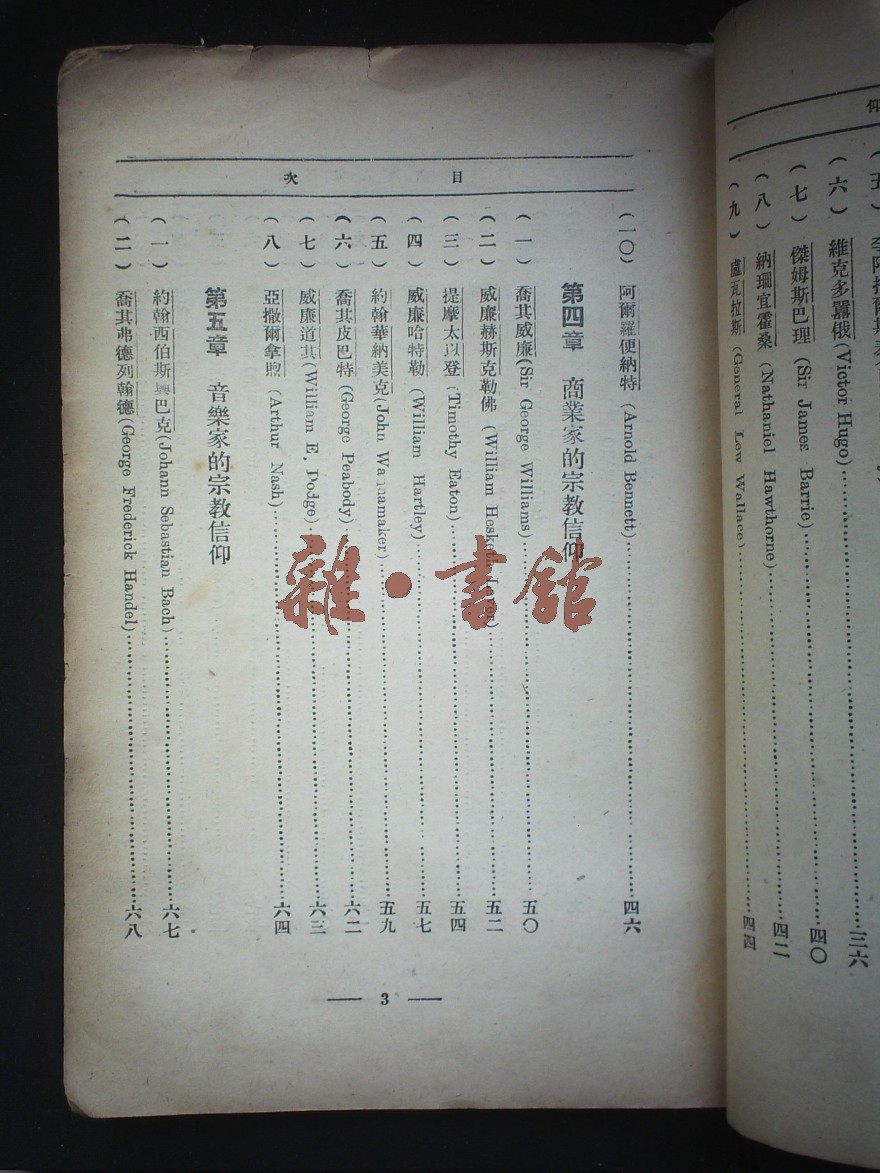 仰
(六) 維克多囂俄(Victor Hugo)……三六
(七) 傑姆斯巴理(Sir James Barrie)……四〇
(八) 納珊宜霍桑(Nathaniel Hawthorne)……四二
(九) 盧克拉斯(General Lew Wallace)……四四
目 次
(一〇) 阿爾羅便納特(Arnold Bennett)……四六
第四章 商業家的宗教信仰
(一) 喬其威廉(Sir George Williams)……五〇
(二) 威廉赫斯克勒佛(William Hesketh Lever)……五二
(三) 提摩太以登(Timothy Eaton)……五四
(四) 威廉哈特勒(William Hartley)……五七
(五) 約翰華納美克(John Wannamaker)……五九
(六) 喬其皮巴特(George Peabody)……六二
(七) 威廉道其(William E. Dodge)……六三
(八) 亞撒爾拿煦(Arthur Nash)……六四
第五章 音樂家的宗教信仰
(一) 約翰西伯斯與巴克(Johann Sebastian Bach)……六七
(二) 喬其弗德列翰德(George Frederick Handel)……六八
3
雜·書館